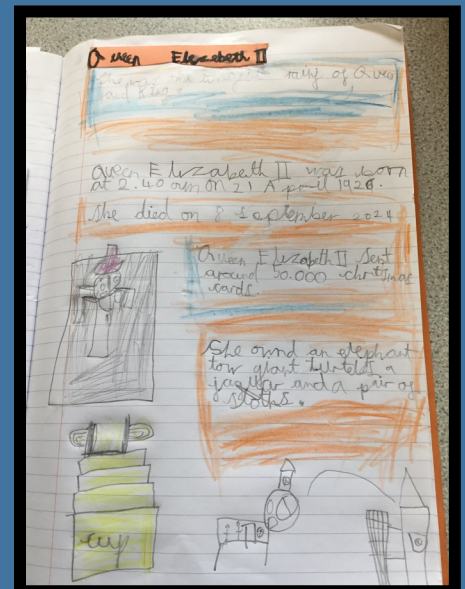 Queen Elezebeth II
She was the longest raing of Queen
and King.
Queen Elizabeth II was born
at 2.40 am on 21 April 1926.
She died on 8 September 2024
Queen Elizabeth II Sent
around 50.000 christmas
cards.
She ownd an elephant
tow giant turtels a
jaguar and a pair of
sloths.
cup